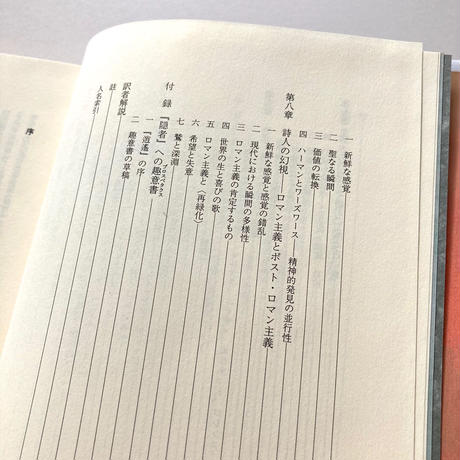 一 新鮮な感覚
二 聖なる瞬間
三 価値の転換
四 ハーマンとワーズワース――精神的発見の並行性
第八章 詩人の幻視――ロマン主義とポスト・ロマン主義
一 新鮮な感覚と感覚の錯乱
二 現代における瞬間の多様性
三 ロマン主義の肯定するもの
四 世界の生と喜びの歌
五 ロマン主義と〈再緑化〉
六 希望と失意
七 鷲と深淵
付録 『隠者』への趣意書
プロスペクタス
一 『逍遙』の序
二 趣意書の草稿
註
訳者解説
人名索引
序